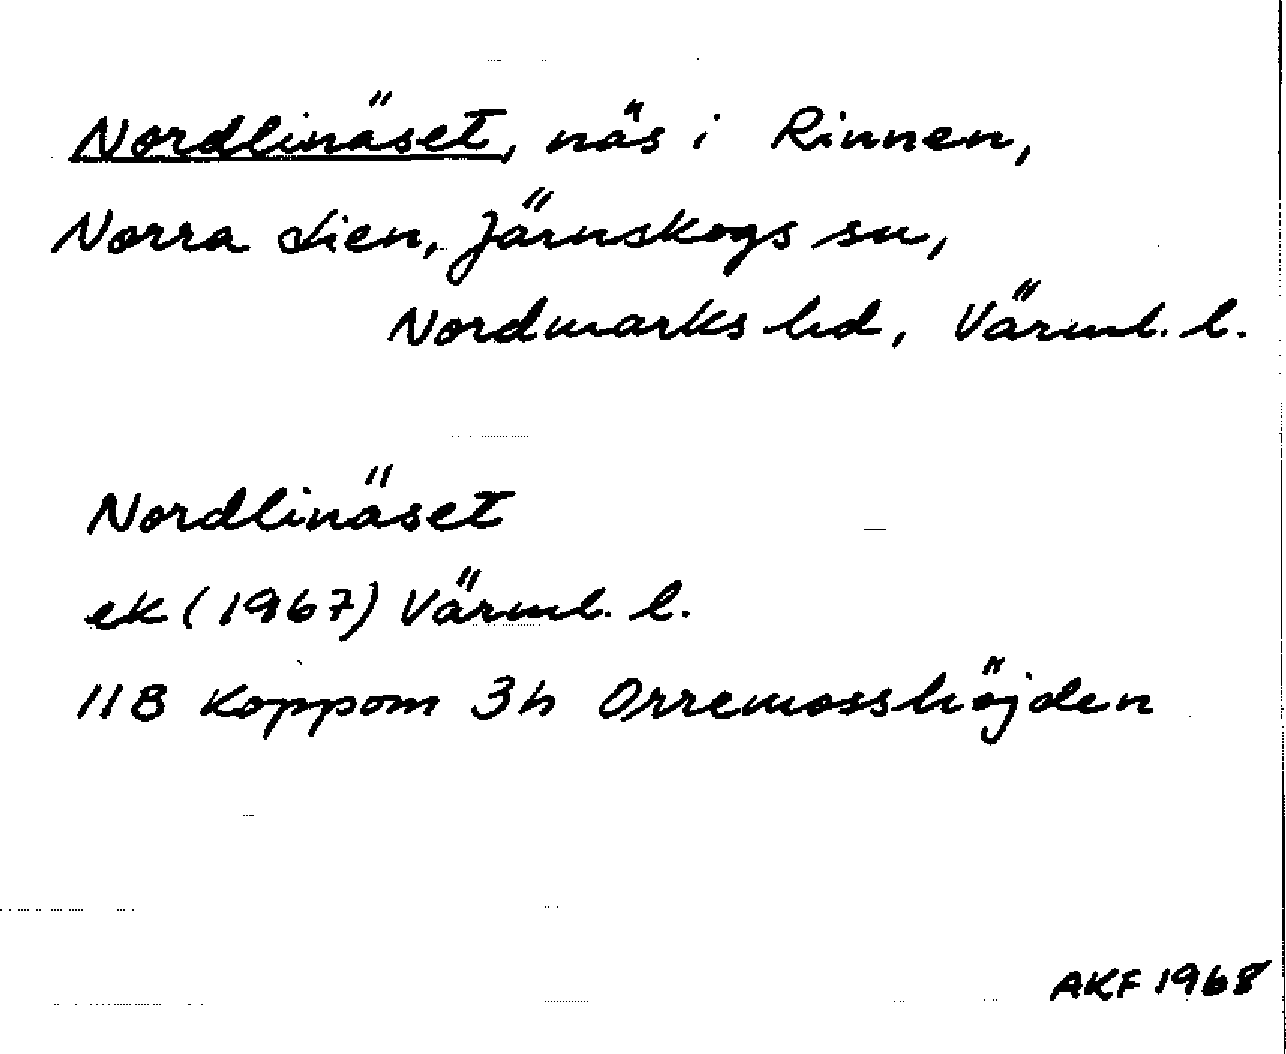 Nordlinäset, näs i Rinnen,
Norra Lien, Järnskogs sn,
Nordmarks hd, Värml. l.
Nordlinäset
ek (1967) Värml. l.
11B Koppom 3h Orremosshöjden
AKF 1968